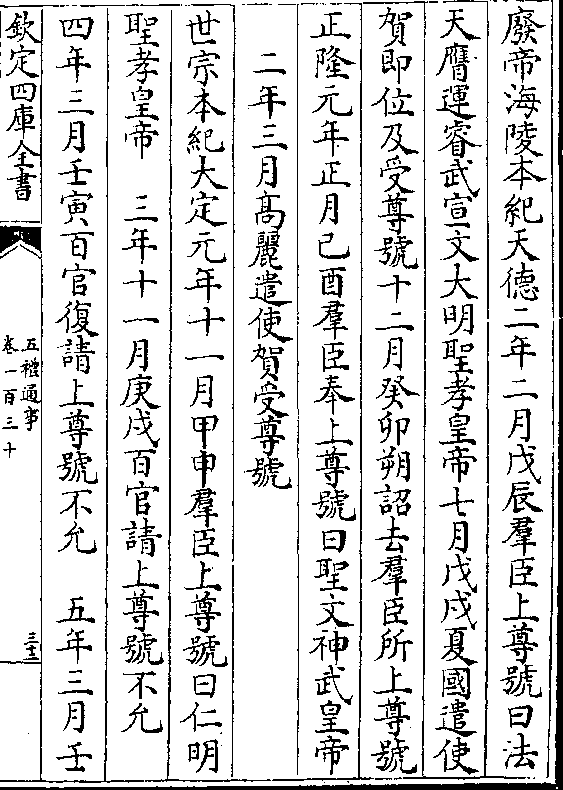 廢帝海陵本紀天德二年二月戊辰羣臣上尊號曰法
天膺運睿武宣文大明聖孝皇帝七月戊戌夏國遣使
賀即位及受尊號十二月癸卯朔詔去羣臣所上尊號
正隆元年正月己酉羣臣奉上尊號曰聖文神武皇帝
二年三月髙麗遣使賀受尊號
世宗本紀大定元年十一月甲申羣臣上尊號曰仁明
聖孝皇帝 三年十一月庚戌百官請上尊號不允
四年三月壬寅百官復請上尊號不允 五年三月壬
欽定四庫全書
五禮通考
卷一百三十
三十三